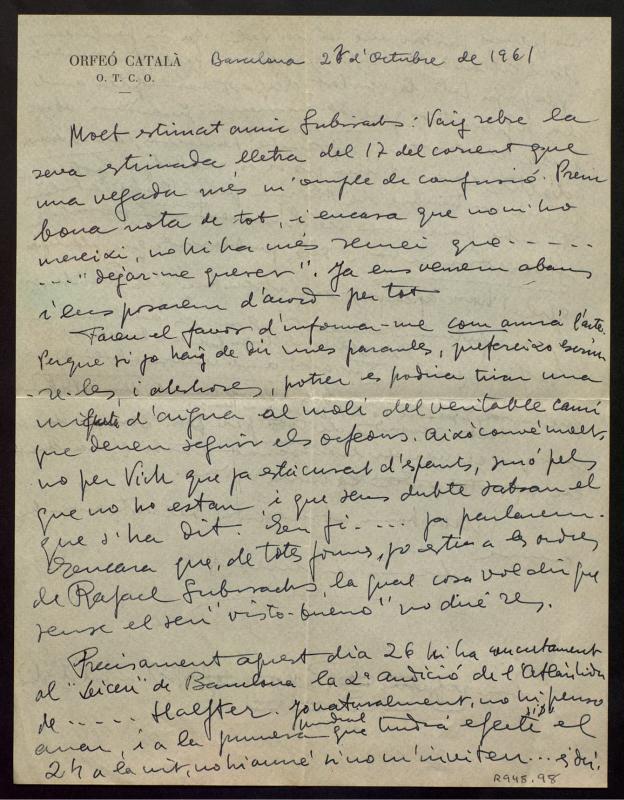 ORFEÓ CATALÀ
O. T. C. O.
Barcelona d'Octubre de 1961
Molt estimat amic Subirachs: Vaig rebre la
seva estimada lletra del 17 del corrent que
una vegada més m'omple de confusió. Prenc
bona nota de tot, i encara que no m'ho
mereixi, no hi ha més remei que - - - - -
- - - "dejar-me querer". Ja ens veurem abans
i ens posarem d'acord per tot
Fareu el favor d'informar-me com anirà l'acte.
Perque si jo haig de dir unes paraules, prefereixo escriu-
re-les, i aleshores, potser es podria tirar una
d'aigua al molí del veritable camí
que deuen seguir els orfeons. Això convé molt,
no per Vich que ja està curat d'espants, sinó pels
que no ho estan, i que sens dubte sabran el
que s'ha dit. En fi - - - . ja parlarem.
Encara que, de totes formes, jo estic a les ordres
de Rafael Subirachs, la qual cosa vol dir que
sense el seu "visto-bueno" no diré res.
Precisament aquest dia 26 hi ha
al "Liceu" de Barcelona la 2ª audició de l'Atlàntida
de - - - - - Halffter. Jo naturalment, no hi penso
anar, i a la primera que tindrà efecte el
24 a la nit, no hi aniré si no m'inviten...
R948.98